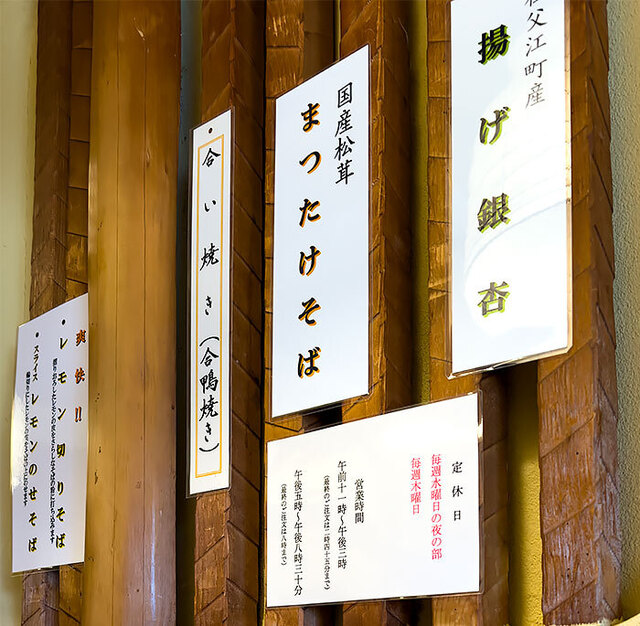 父江町産
揚げ銀杏
国産松茸
まつたけそば
合い焼き(合鴨焼き)
定休日
毎週水曜日の夜の部
毎週木曜日
営業時間
午前十一時~午後三時
(最終のご注文は二時四十五分まで)
午後五時~午後八時三十分
(最終のご注文は八時まで)
爽快!!
・レモン切りそば
・スライスレモンのせそば